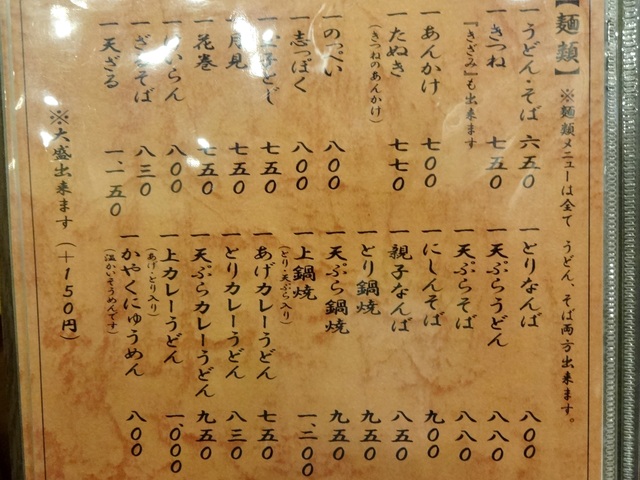 【麺類】※麺類メニューは全て うどん、そば両方出来ます。
一 うどん・そば 六五0
一 きつね 七五0
『きざみ』も出来ます
一 あんかけ 七00
一 たぬき 七七0
(きつねのあんかけ)
一 のっぺい 八00
一 志っぽく 八00
一 玉子とじ 七五0
一 月見 七五0
一 花巻 七五0
一 けいらん 八00
一 ざるそば 八三0
一 天ざる 一、一五0
一 とりなんば 八00
一 天ぷらうどん 八八0
一 天ぷらそば 八八0
一 にしんそば 九00
一 親子なんば 八五0
一 とり鍋焼 九五0
一 天ぷら鍋焼 九五0
一 上鍋焼 一、二00
(とり・天ぷら入り)
一 あげカレーうどん 七五0
一 とりカレーうどん 八三0
一 天ぷらカレーうどん 九五0
一 上カレーうどん 一、000
(あげ・とり入り)
一 かやくにゅうめん 八00
(温かいそうめんです)
※大盛出来ます (+150円)